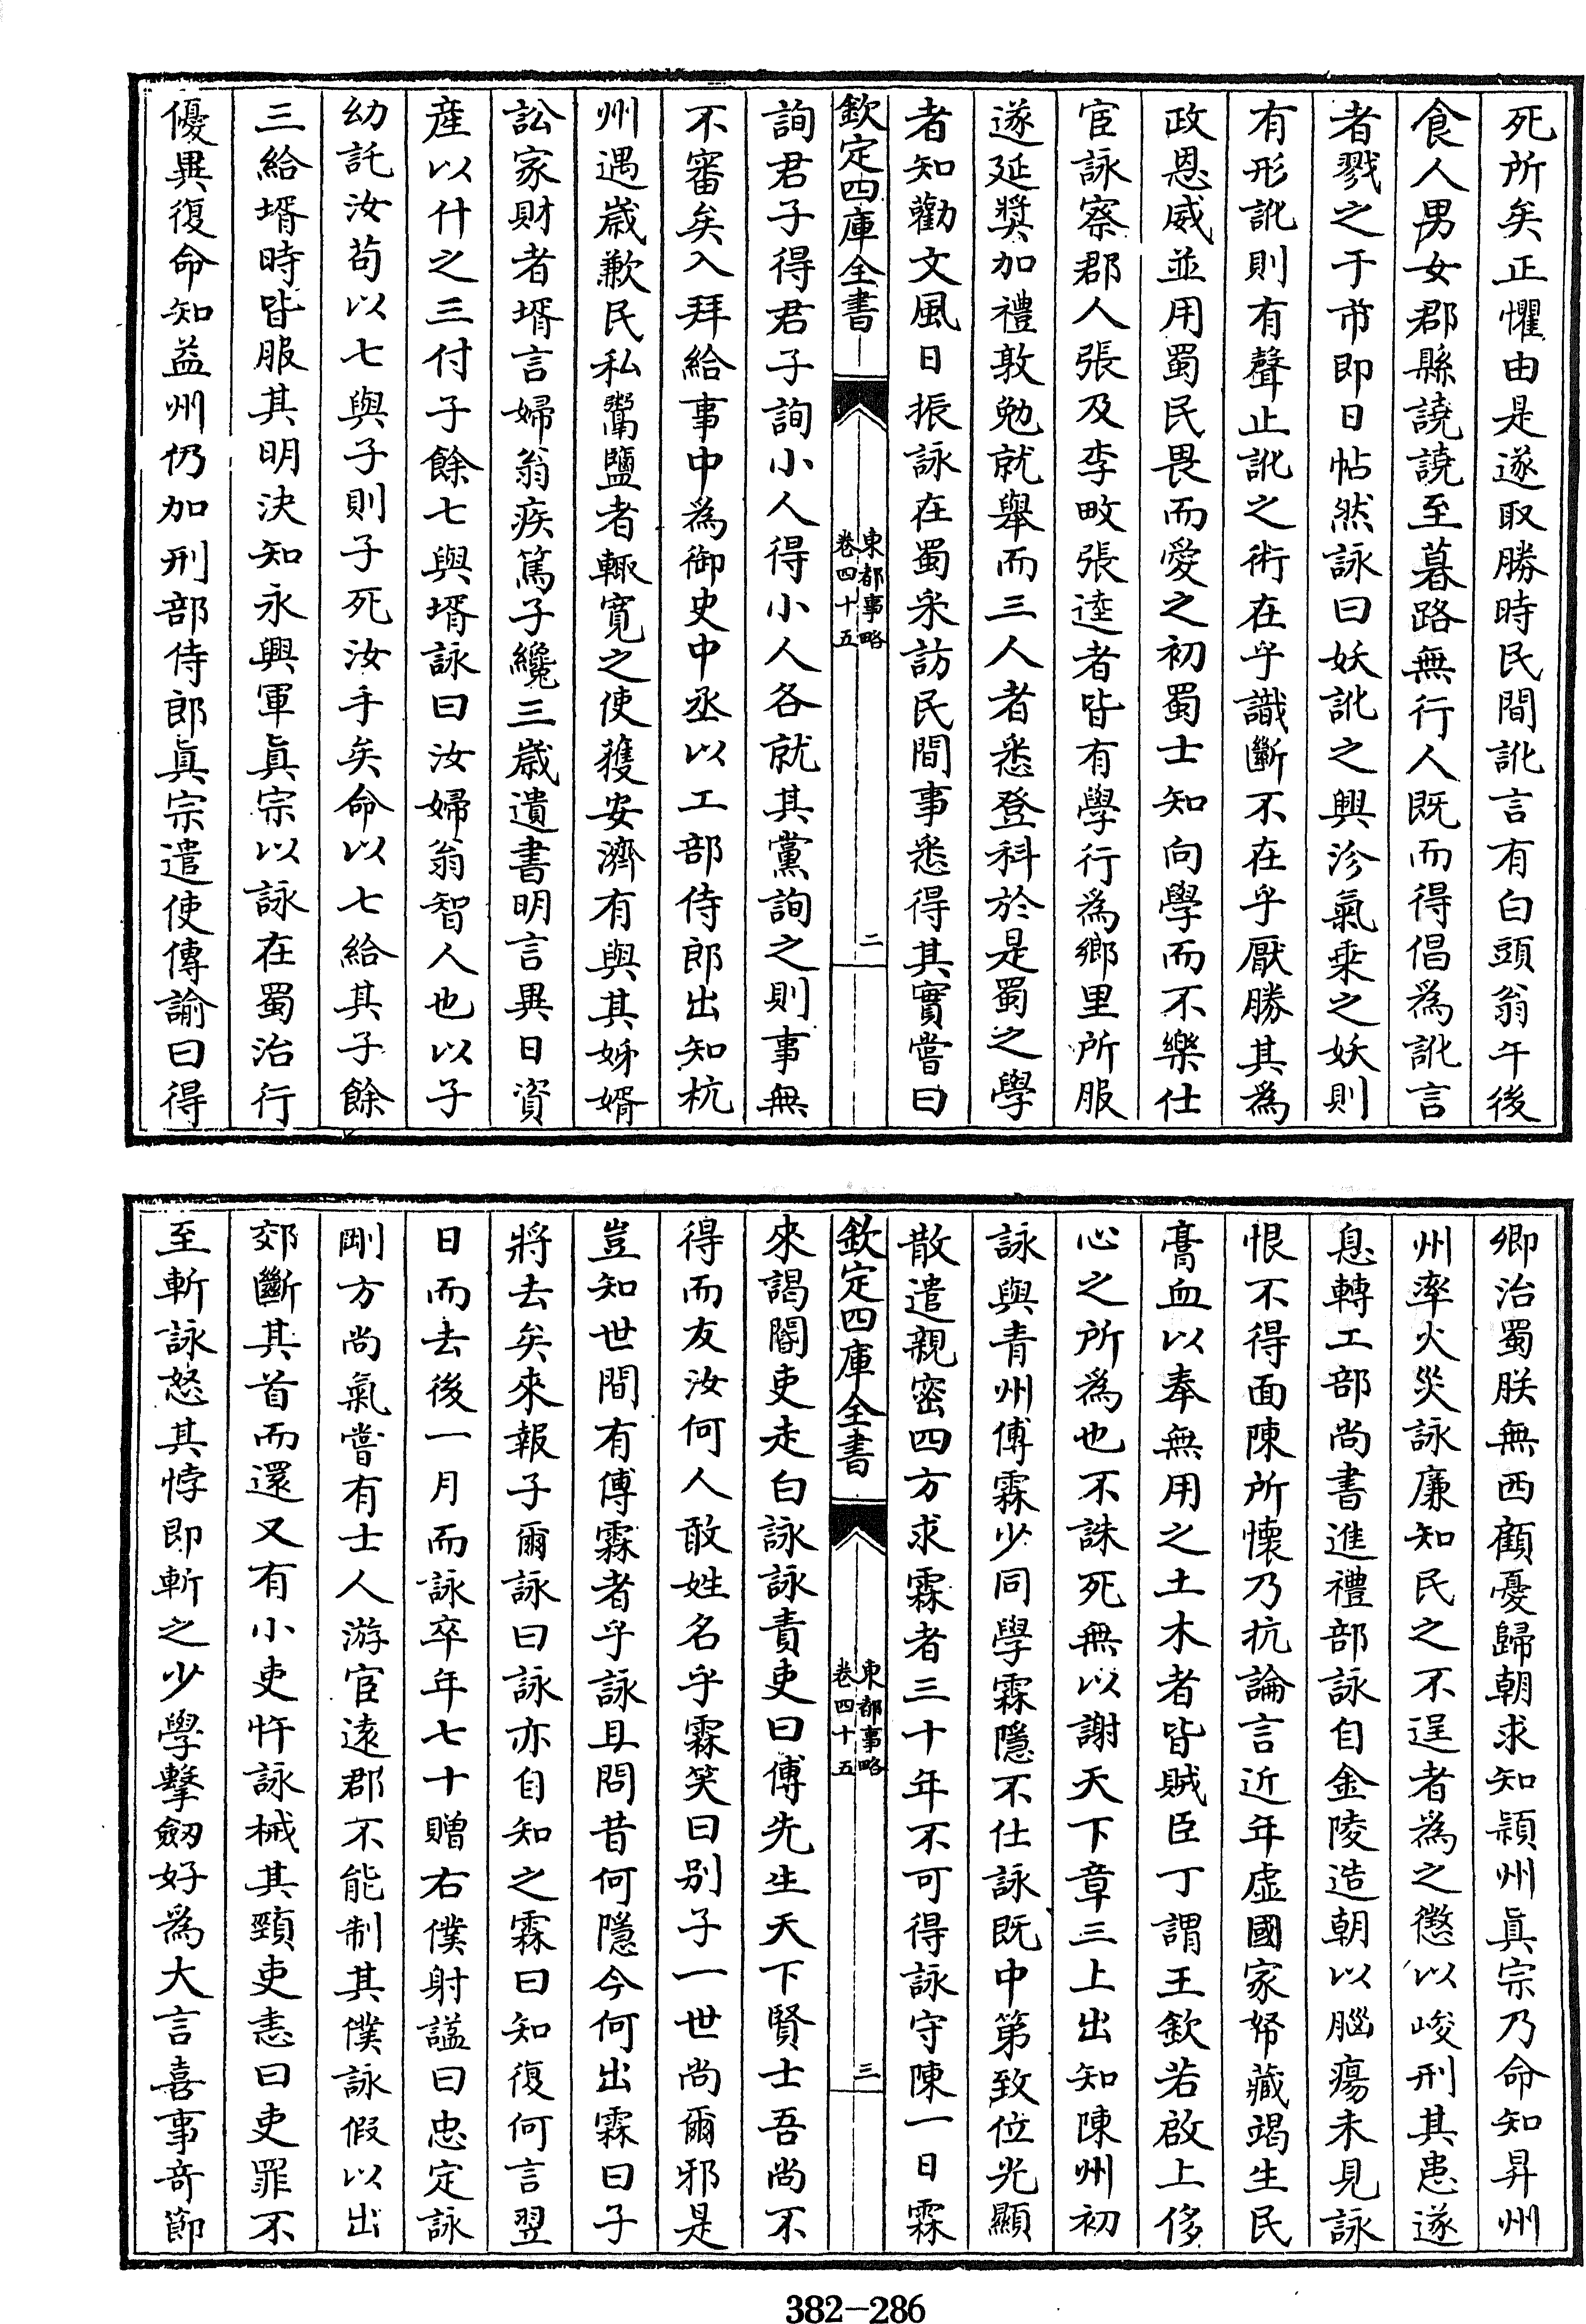 死所矣正懼由是遂取勝時民間訛言有白頭翁午後
食人男女郡縣譊譊至暮路無行人既而得倡為訛言
者戮之于市即日帖然詠曰妖訛之興沴氣乗之妖則
有形訛則有聲止訛之術在乎識斷不在乎厭勝其為
政恩威並用蜀民畏而愛之初蜀士知向學而不樂仕
宦詠察郡人張及李畋張逵者皆有學行為鄉里所服
遂延奬加禮敦勉就舉而三人者悉登科於是蜀之學
者知勸文風日振詠在蜀采訪民間事悉得其實嘗曰
欽定四庫全書
東都事略
卷四十五
二
詢君子得君子詢小人得小人各就其黨詢之則事無
不審矣入拜給事中為御史中丞以工部侍郎出知杭
州遇歲歉民私鬻鹽者輒寛之使獲安濟有與其姊婿
訟家財者壻言婦翁疾篤子纔三歲遺書明言異日資
産以什之三付子餘七與壻詠曰汝婦翁智人也以子
幼託汝苟以七與子則子死汝手矣命以七給其子餘
三給壻時皆服其明決知永興軍真宗以詠在蜀治行
優異復命知益州仍加刑部侍郎真宗遣使傳諭曰得
卿治蜀朕無西顧憂歸朝求知潁州真宗乃命知昇州
州率火災詠廉知民之不逞者為之懲以峻刑其患遂
息轉工部尚書進禮部詠自金陵造朝以腦瘍未見詠
恨不得面陳所懷乃抗論言近年虚國家帑藏竭生民
膏血以奉無用之土木者皆賊臣丁謂王欽若啟上侈
心之所為也不誅死無以謝天下章三上出知陳州初
詠與青州傅霖少同學霖隱不仕詠既中第致位光顯
散遣親密四方求霖者三十年不可得詠守陳一日霖
欽定四庫全書
東都事略
卷四十五
三
來謁閽吏走白詠詠責吏曰傅先生天下賢士吾尚不
得而友汝何人敢姓名乎霖笑曰别子一世尚爾邪是
豈知世間有傅霖者乎詠且問昔何隱今何出霖曰子
將去矣來報子爾詠曰詠亦自知之霖曰知復何言翌
日而去後一月而詠卒年七十贈右僕射諡曰忠定詠
剛方尚氣嘗有士人游宦逺郡不能制其僕詠假以出
郊斷其首而還又有小吏忤詠械其頸吏恚曰吏罪不
至斬詠怒其悖即斬之少學擊劒好為大言喜事竒節
382—286